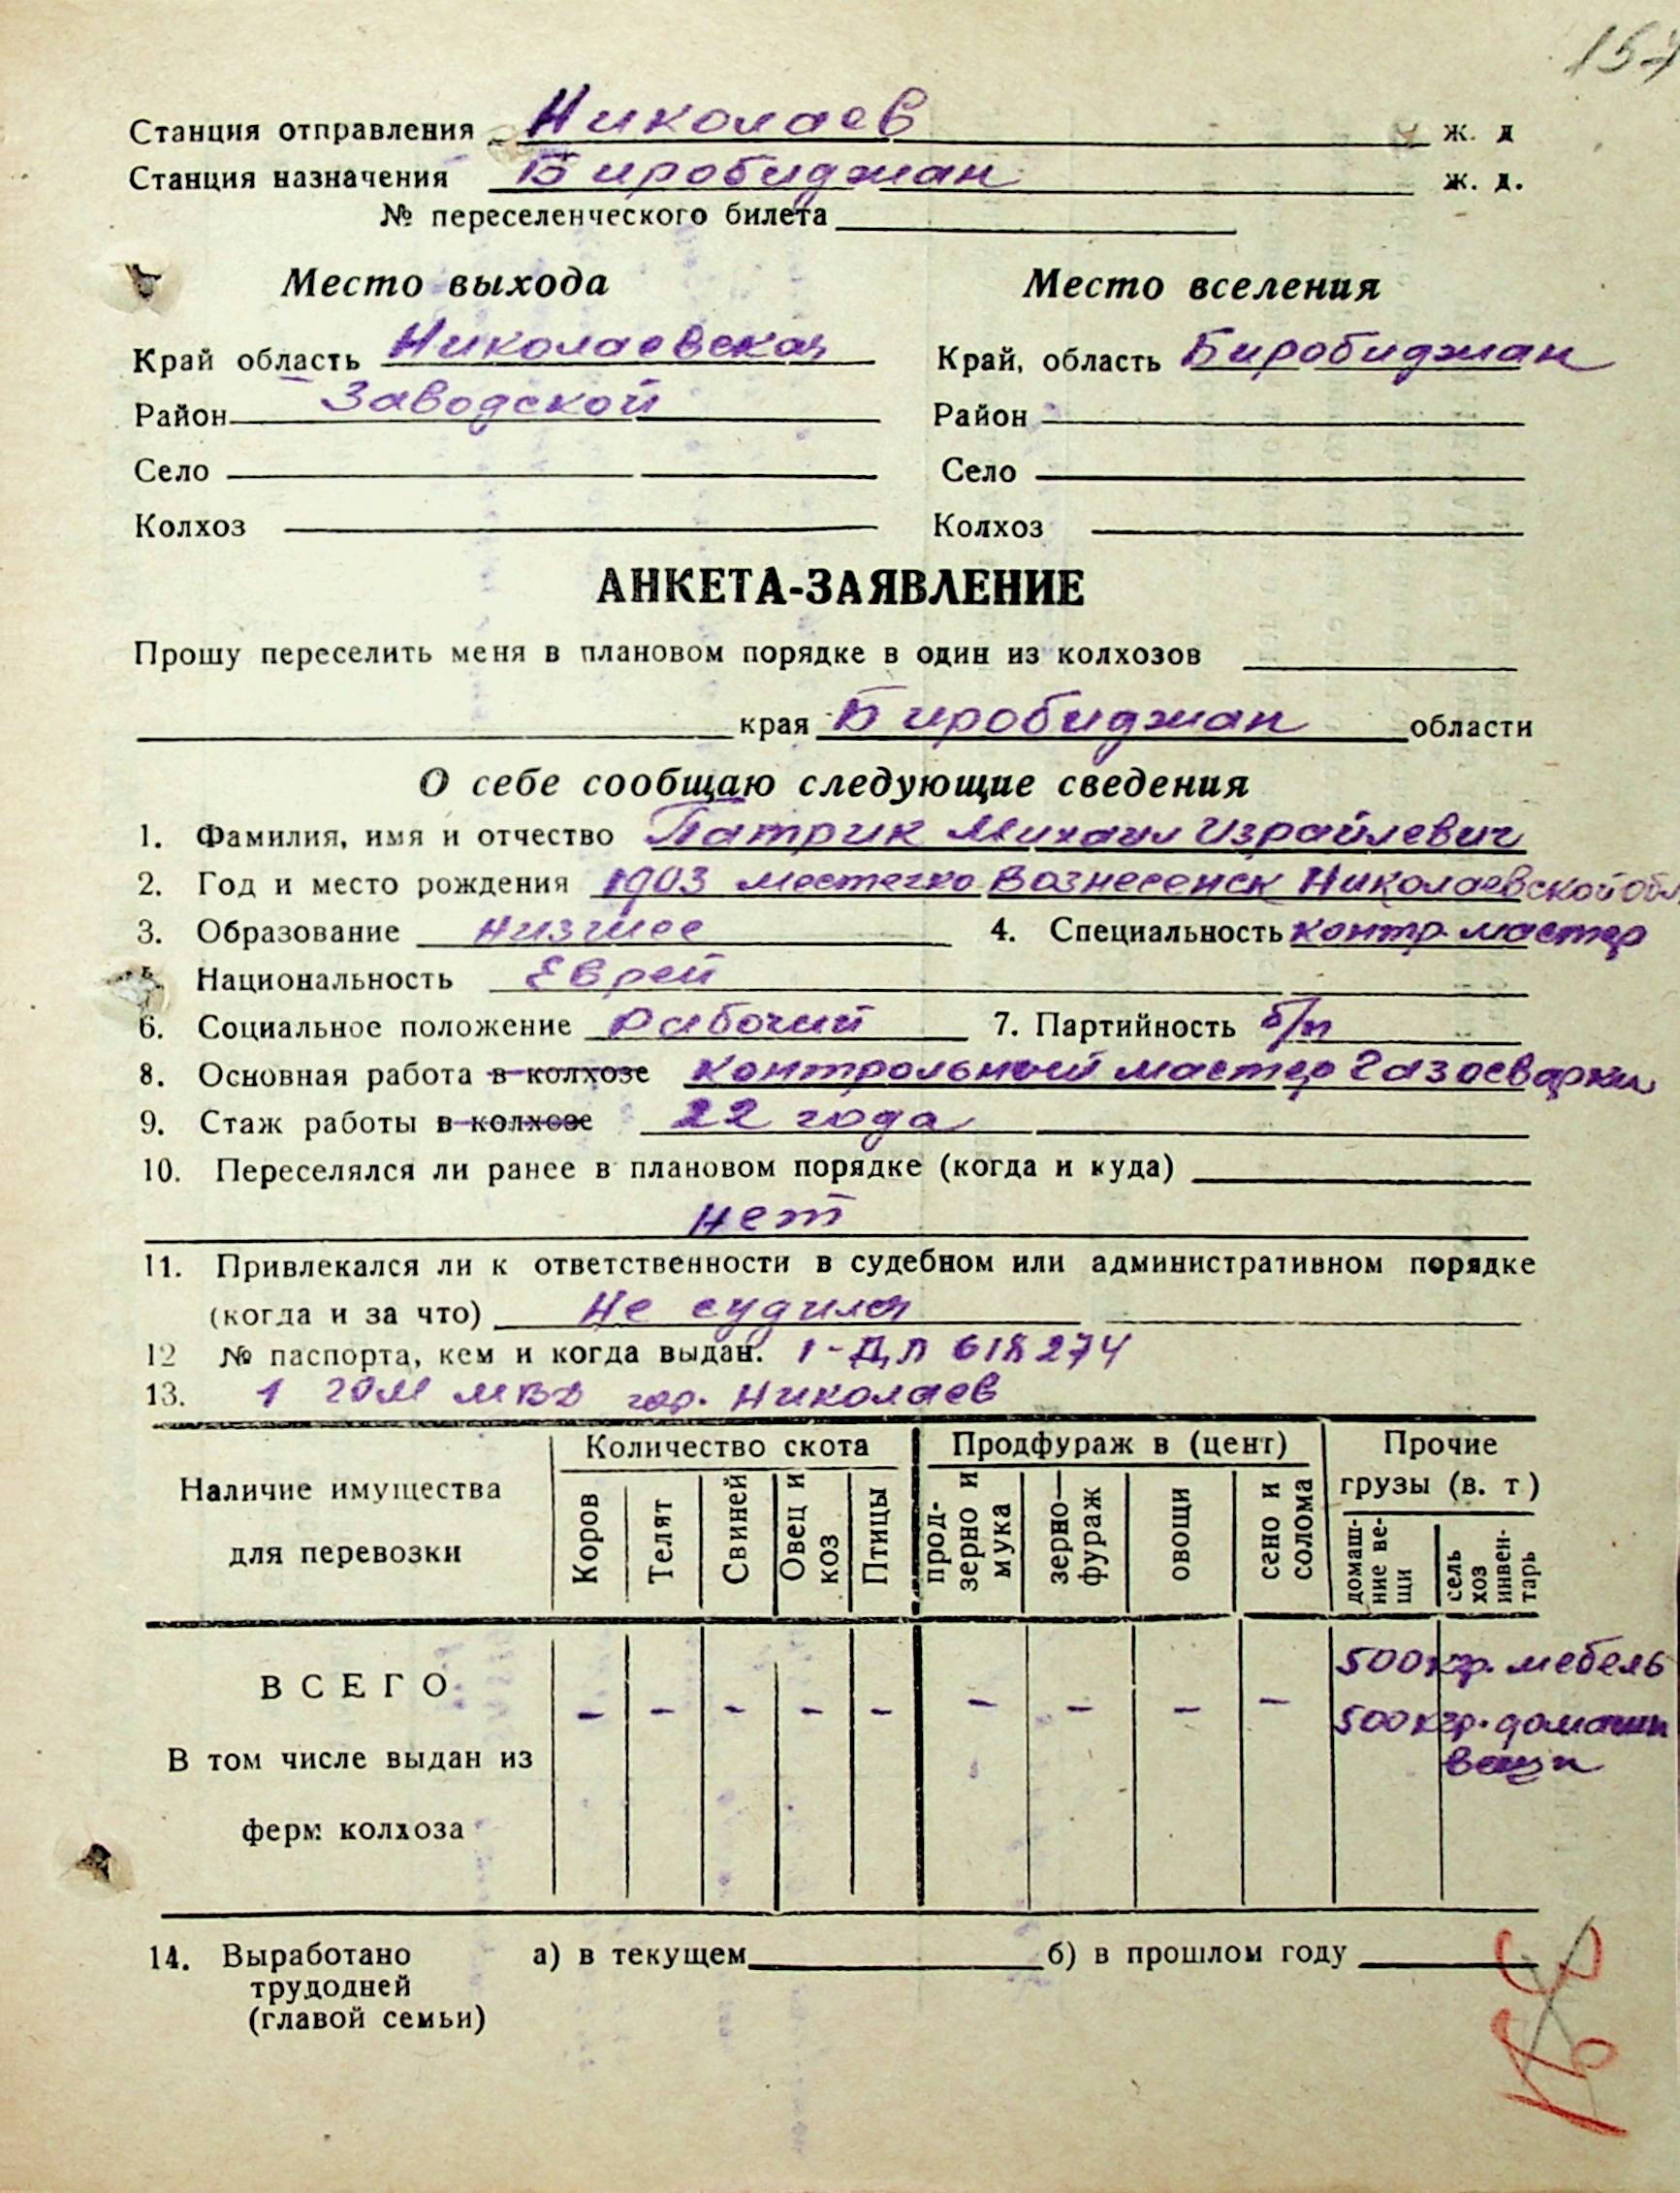 157
Станция отправления Николаев ж. д
Станция назначения Биробиджан ж. д.
№ переселенческого билета
Место выхода Место вселения
Край область Николаевская Край, область Биробиджан
Район Заводской Район
Село Село
Колхоз Колхоз
АНКЕТА-ЗАЯВЛЕНИЕ
Прошу переселить меня в плановом порядке в один из колхозов
края Биробиджан области
О себе сообщаю следующие сведения
1. Фамилия, имя и отчество Патрик Михаил Израйлевич
2. Год и место рождения 1903 местечко Вознесенск Николаевской обл.
3. Образование низшее 4. Специальность контр. мастер
5. Национальность Еврей
6. Социальное положение рабочий 7. Партийность б/п
8. Основная работа в колхозе контрольный мастер газосварки
9. Стаж работы в колхозе 22 года
10. Переселялся ли ранее в плановом порядке (когда и куда)
нет
11. Привлекался ли к ответственности в судебном или административном порядке
(когда и за что) Не судился
12 № паспорта, кем и когда выдан. 1-ДЛ 618274
13. 1 ГОМ МВД гор. Николаев
Наличие имущества для перевозки
Количество скота
Продфураж в (цент)
Прочие грузы (в. т)
Коров
Телят
Свиней
Овец и коз
Птицы
прод-зерно и мука
зерно-фураж
овощи
сено и солома
домаш-ние ве-щи
сель хоз инвен-тарь
ВСЕГО - - - - - - - - - 500 кгр. мебель
500 кгр. домашн
вещи
В том числе выдан из
ферм колхоза
14. Выработано а) в текущем б) в прошлом году
трудодней
(главой семьи)